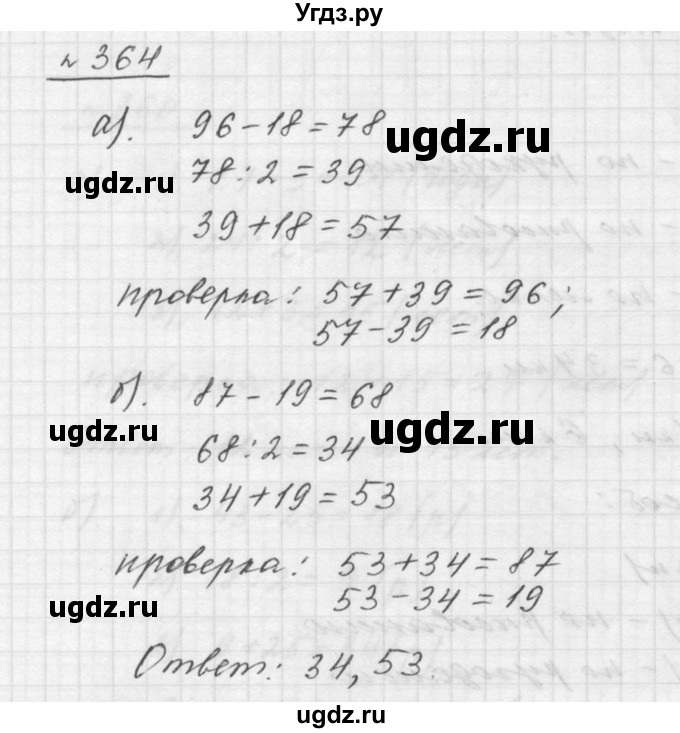 Угдз.ру
№ 364
а). 96 - 18 = 78
ugdz.ru
78 : 2 = 39
ugdz.ru
39 + 18 = 57
проверка: 57 + 39 = 96;
57 - 39 = 18
б). 87 - 19 = 68
ugdz.ru
ugdz.ru
68 : 2 = 34
34 + 19 = 53
проверка: 53 + 34 = 87
ugdz.ru
53 - 34 = 19
Ответ: 34, 53.
ugdz.ru